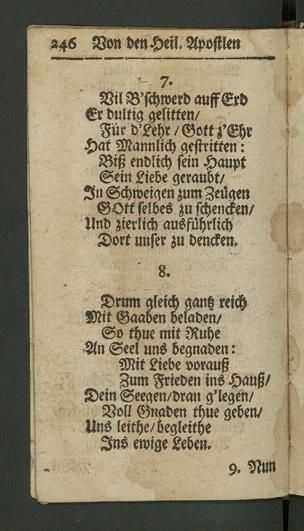 246 Von den Heil. Apostlen
7.
Vil B'schwerd auff Erd
Er dultig gelitten/
Für d'Lehr / Gott z'Ehr
Hat Mannlich gestritten:
Biß endlich sein Haupt
Sein Liebe geraubt/
In Schweigen zum Zeügen
GOtt selbes zu schencken/
Und zierlich ausführlich
Dort unser zu dencken.
8.
Drum gleich gantz reich
Mit Gaaben beladen/
So thue mit Ruhe
An Seel uns begnaden:
Mit Liebe vorauß
Zum Frieden ins Hauß/
Dein Seegen/dran g'legen/
Voll Gnaden thue geben/
Uns leithe/begleithe
Ins ewige Leben.
9. Nun